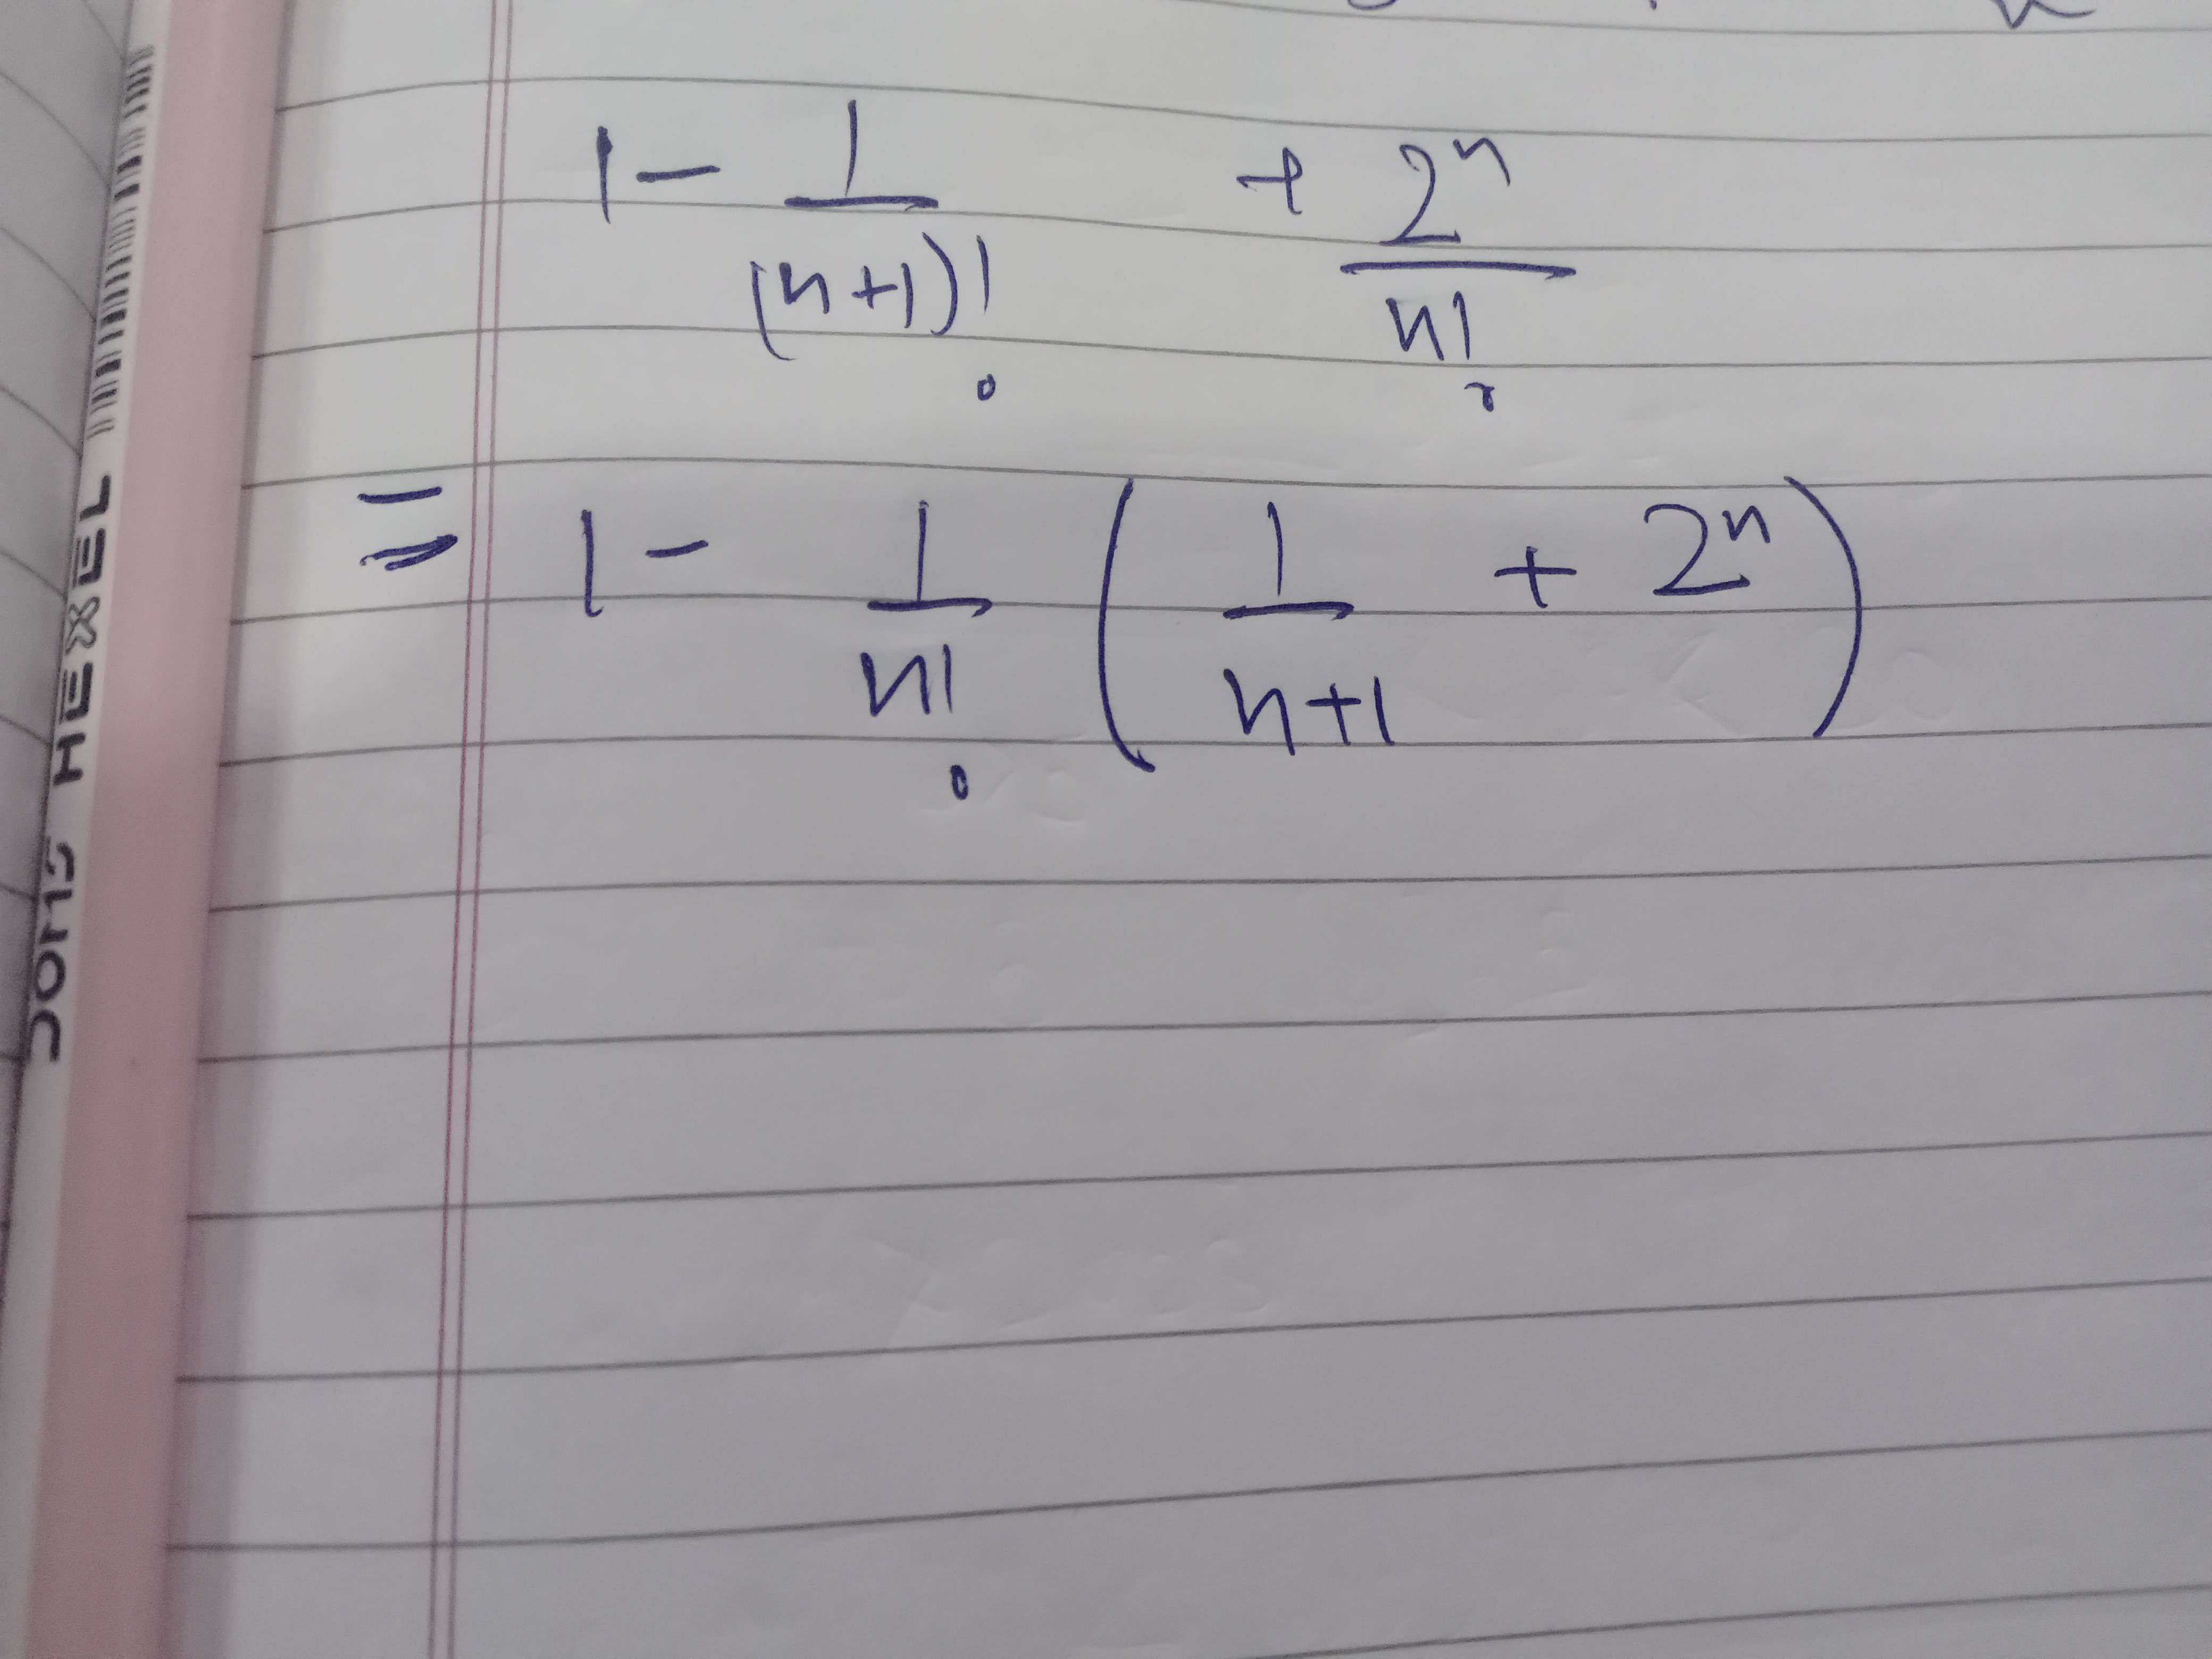 1 - 1/(n+1)! + 2^n/n!
= 1 - 1/n! ( 1/(n+1) + 2^n )
DOMS HEXEL